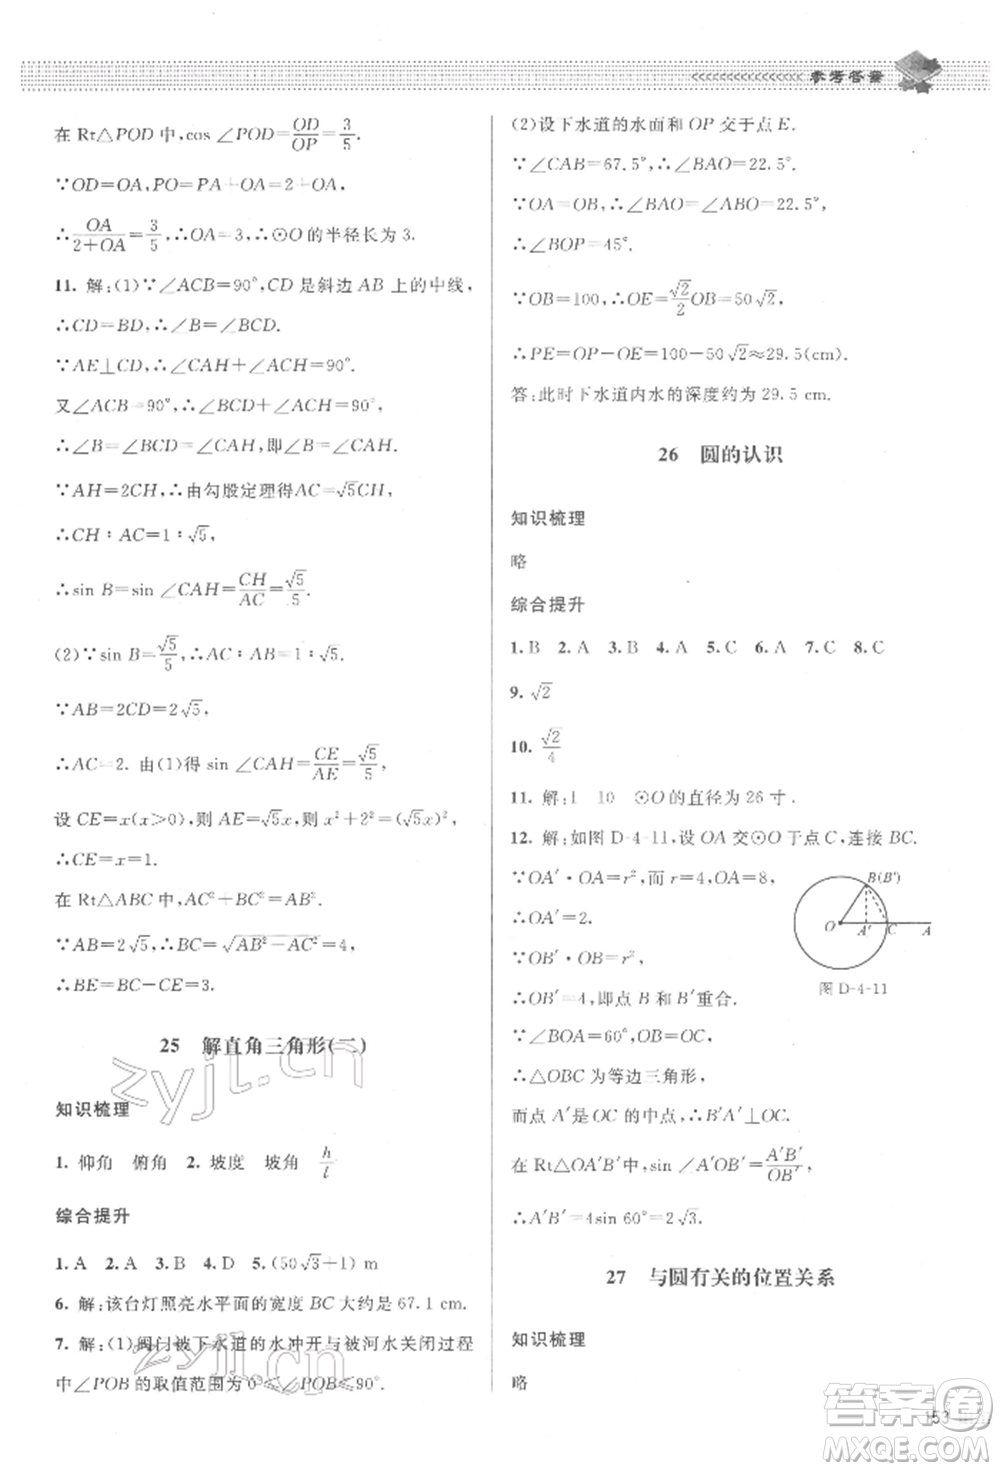 参考答案
在 Rt△POD 中,cos ∠POD=OD/OP=3/5.
∵OD=OA,PO=PA+OA=2+OA,
∴OA/(2+OA)=3/5,∴OA=3,∴⊙O 的半径长为 3.
11. 解:(1)∵∠ACB=90°,CD 是斜边 AB 上的中线,
∴CD=BD,∴∠B=∠BCD.
∵AE⊥CD,∴∠CAH+∠ACH=90°.
又∠ACB=90°,∴∠BCD+∠ACH=90°,
∴∠B=∠BCD=∠CAH,即∠B=∠CAH.
∵AH=2CH,∴由勾股定理得AC=√5CH,
∴CH∶AC=1∶√5,
∴sin B=sin ∠CAH=CH/AC=√5/5.
(2)∵sin B=√5/5,∴AC∶AB=1∶√5.
∵AB=2CD=2√5,
∴AC=2. 由(1)得 sin ∠CAH=CE/AE=√5/5,
设 CE=x(x>0),则 AE=√5x,则 x²+2²=(√5x)²,
∴CE=x=1.
在 Rt△ABC 中,AC²+BC²=AB².
∵AB=2√5,∴BC=√(AB²-AC²)=4,
∴BE=BC-CE=3.
25 解直角三角形(二)
知识梳理
1. 仰角 俯角 2. 坡度 坡角 h/l
综合提升
1. A 2. A 3. B 4. D 5. (50√3+1) m
6. 解:该台灯照亮水平面的宽度 BC 大约是 67.1 cm.
7. 解:(1)阀门被下水道的水冲开与被河水关闭过程
中∠POB 的取值范围为 0≤∠POB≤90°.
(2)设下水道的水面和 OP 交于点 E.
∵∠CAB=67.5°,∴∠BAO=22.5°.
∵OA=OB,∴∠BAO=∠ABO=22.5°,
∴∠BOP=45°.
∵OB=100,∴OE=√2/2OB=50√2,
∴PE=OP-OE=100-50√2≈29.5(cm).
答:此时下水道内水的深度约为 29.5 cm.
26 圆的认识
知识梳理
略
综合提升
1. B 2. A 3. B 4. A 5. C 6. A 7. C 8. C
9. √2
10. √2/4
11. 解:1 10 ⊙O 的直径为 26 寸.
12. 解:如图 D-4-11,设 OA 交⊙O 于点 C,连接 BC.
∵OA′·OA=r²,而 r=4,OA=8,
∴OA′=2.
∵OB′·OB=r²,
∴OB′=4,即点 B 和 B′重合.
∵∠BOA=60°,OB=OC,
∴△OBC 为等边三角形,
而点 A′是 OC 的中点,∴B′A′⊥OC.
在 Rt△OA′B′中,sin ∠A′OB′=A′B′/OB′,
∴A′B′=4sin 60°=2√3.
B(B′)
O A′ C A
图 D-4-11
27 与圆有关的位置关系
知识梳理
略
153
zyjl.cn
zyjl.cn
答案圈
MXQE.COM